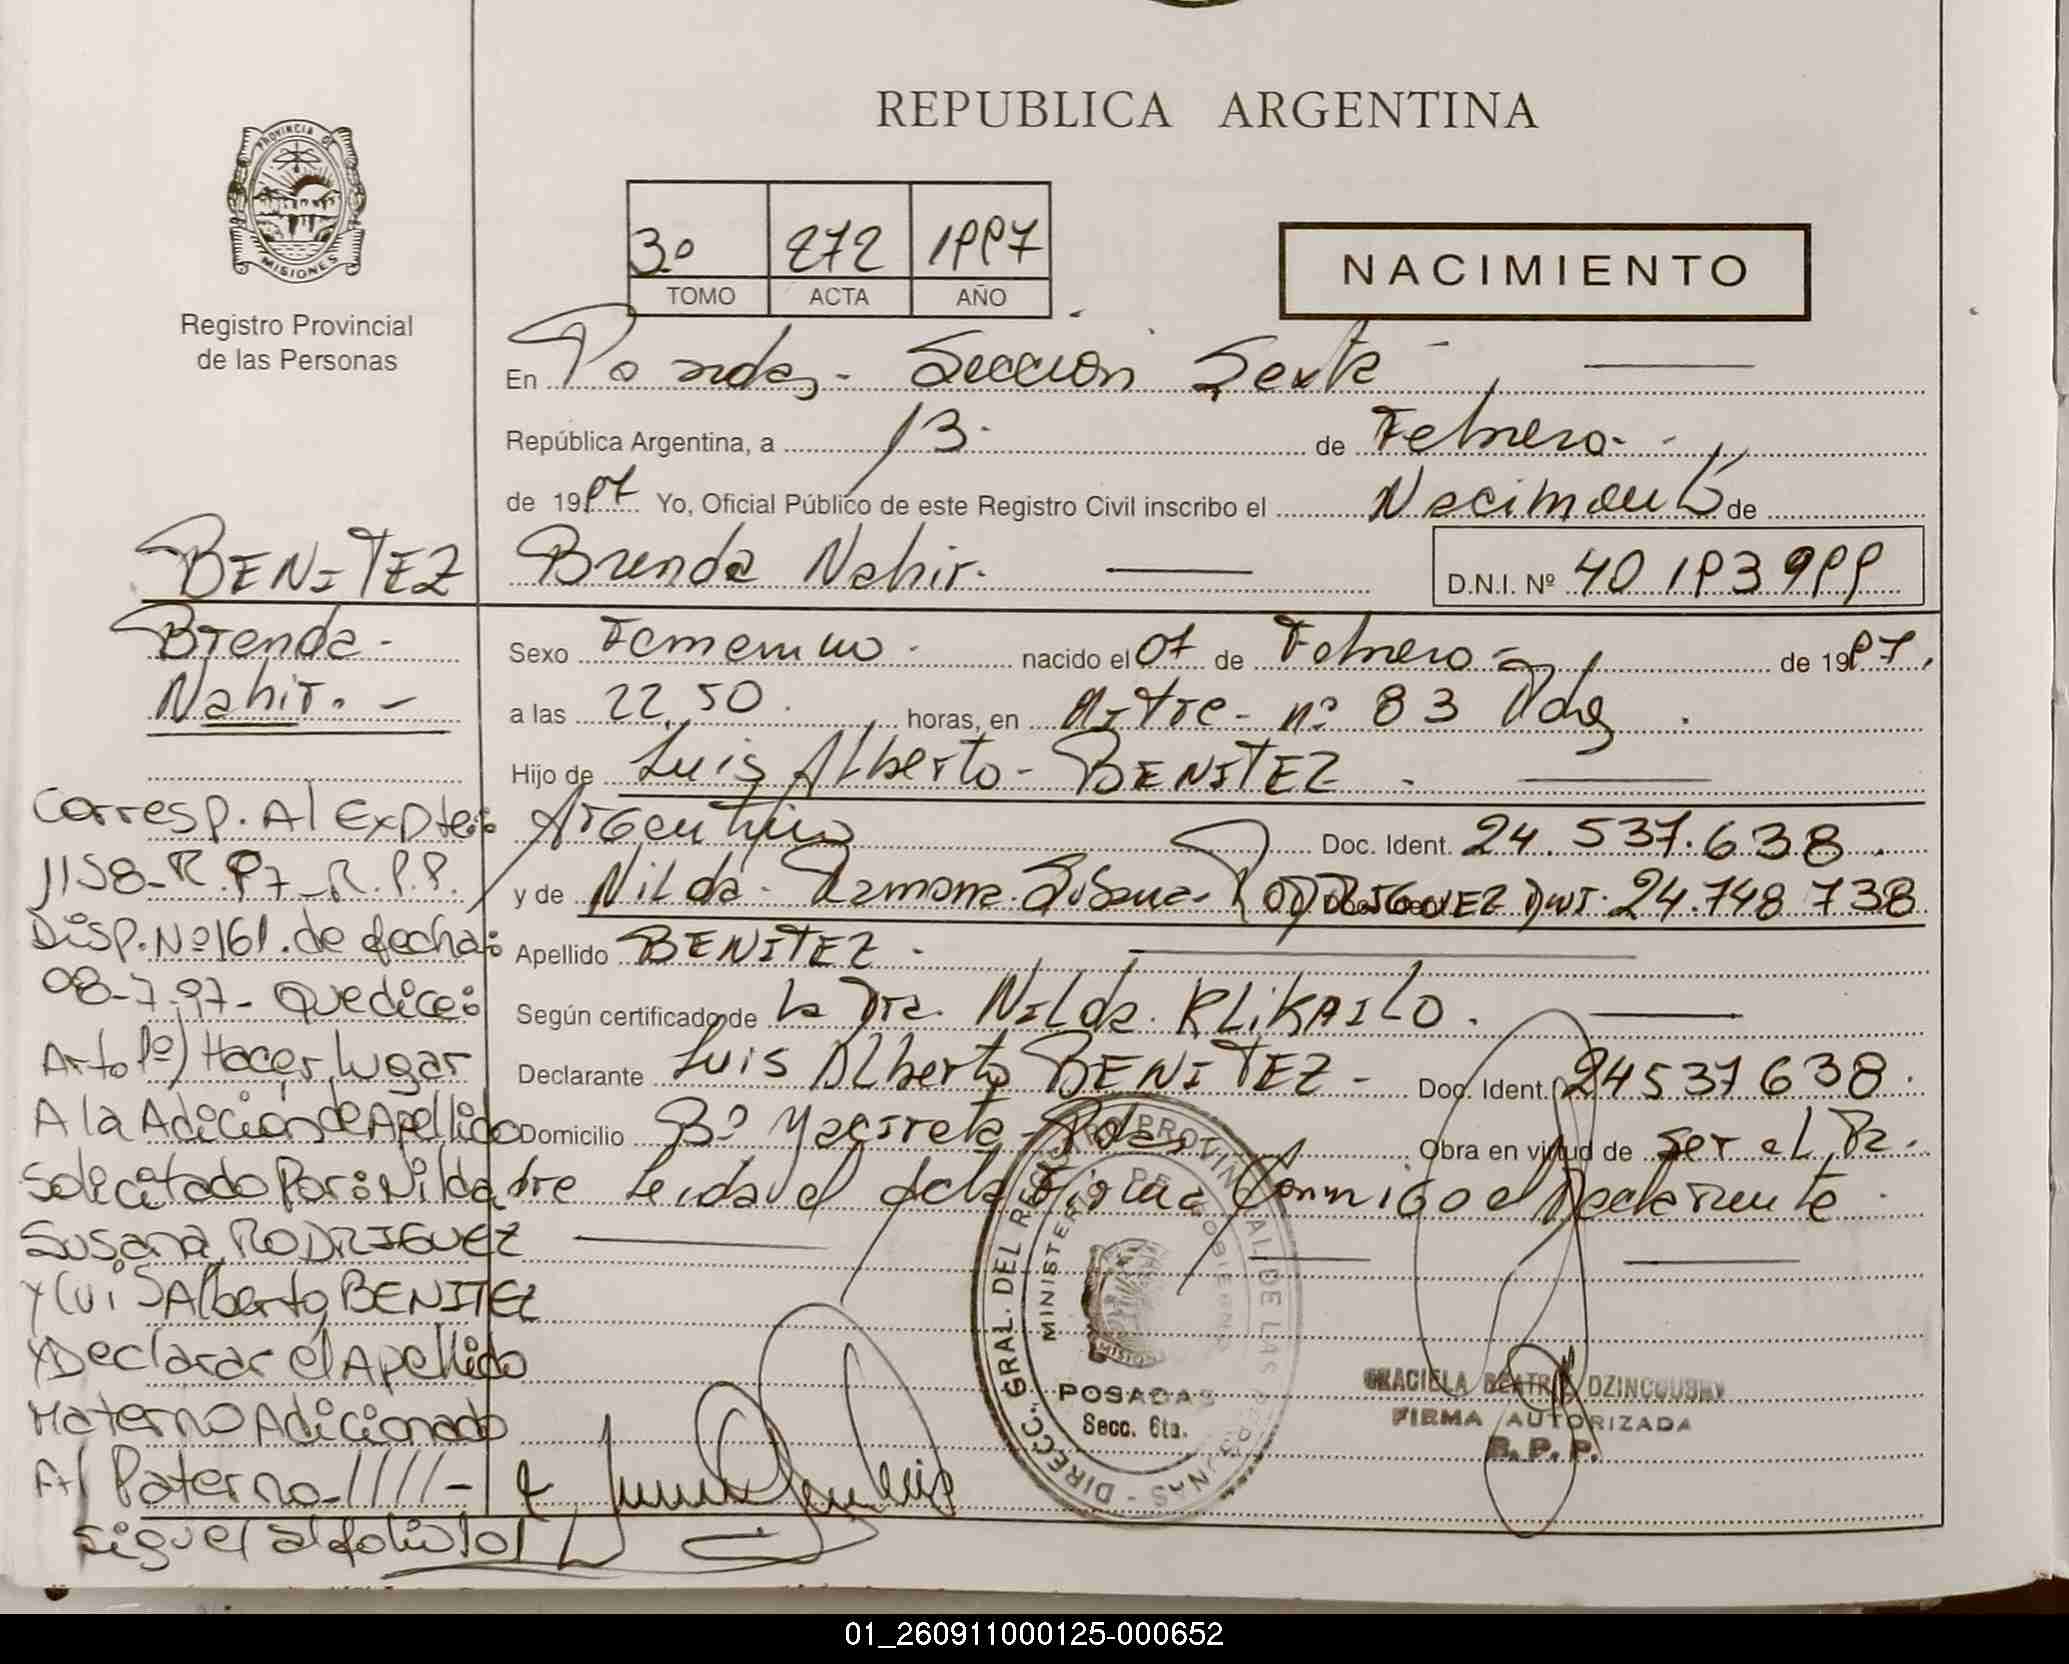 REPUBLICA ARGENTINA
PROVINCIA DE
MISIONES
Registro Provincial
de las Personas
3º 272 1997
TOMO ACTA AÑO
NACIMIENTO
En Posadas - Sección Sexta
República Argentina, a 13 de Febrero
de 1997 Yo, Oficial Público de este Registro Civil inscribo el Nacimiento de
Brenda Nahir. D.N.I. Nº 40 193 999
Sexo Femenino nacido el 07 de Febrero de 1997.
a las 22,50 horas, en Mitre - nº 83 Pdas
Hijo de Luis Alberto - BENITEZ
Argentino Doc. Ident. 24.537.638
y de Nilda - Ramona Susana - RODRIGUEZ DNI. 24.748 738
Apellido BENITEZ
Según certificado de la Dra. Nilda KLIKAILO.
Declarante Luis Alberto BENITEZ - Doc. Ident. 24537638
Domicilio Bº Yacireta - Pdas Obra en virtud de ser el Pa-
dre Leida el Acta Firma Conmigo el Declarante
BENITEZ
Brenda -
Nahir. -
Corresp. Al Expte:
1158-R.97-R.P.P.
Disp. Nº 161. de fecha:
08-7-97- Que dice:
Arto 1º) Hacer lugar
A la Adicion de Apellido
Solicitado Por: Nilda
Susana RODRIGUEZ
Y Luis Alberto BENITEZ
Y Declarar el Apellido
Materno Adicionado
Al Paterno-////-
sigue al folio 101
DIRECC. GRAL. DEL REGISTRO PROVINCIAL DE LAS PERSONAS -
MINISTERIO DE GOBIERNO
MISIONES
POSADAS
Secc. 6ta.
GRACIELA BEATRIZ DZINCOUSKY
FIRMA AUTORIZADA
R. P. P.
01_260911000125-000652